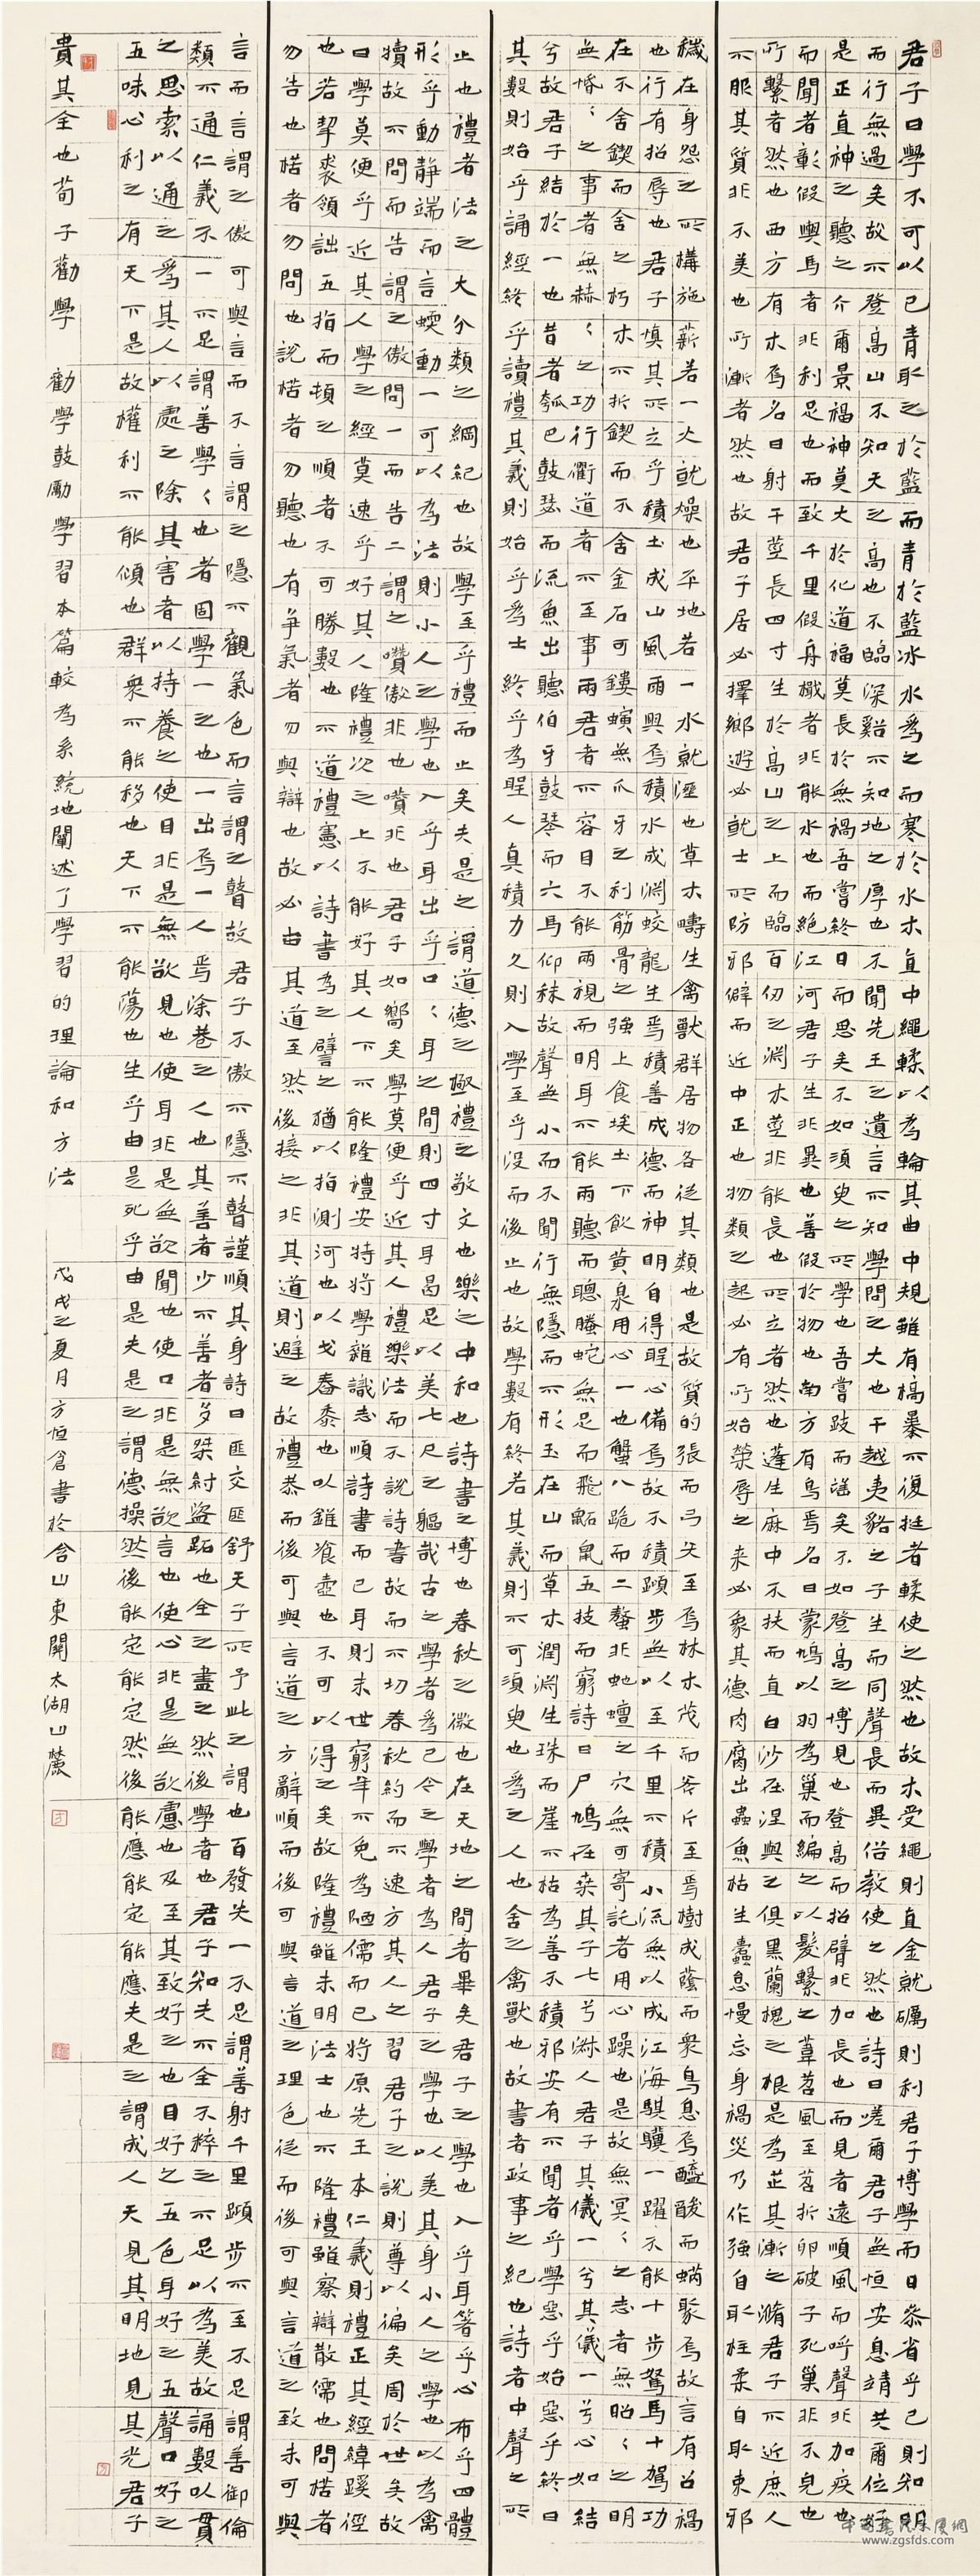 君子曰學不可以已青取之於藍而青於藍冰水為之而寒於水木直中繩輮以為輪其曲中規雖有槁暴不復挺者輮使之然也故木受繩則直金就礪則利君子博學而日參省乎己則知明
而行無過矣故不登高山不知天之高也不臨深谿不知地之厚也不聞先王之遺言不知學問之大也干越夷貉之子生而同聲長而異俗教使之然也詩曰嗟爾君子無恒安息靖共爾位好
是正直神之聽之介爾景福神莫大於化道福莫長於無禍吾嘗終日而思矣不如須臾之所學也吾嘗跂而望矣不如登高之博見也登高而招臂非加長也而見者遠順風而呼聲非加疾也
而聞者彰假輿馬者非利足也而致千里假舟檝者非能水也而絕江河君子生非異也善假於物也南方有鳥焉名曰蒙鳩以羽為巢而編之以髮繫之葦苕風至苕折卵破子死巢非不完也
所繫者然也西方有木焉名曰射干莖長四寸生於高山之上而臨百仞之淵木莖非能長也所立者然也蓬生麻中不扶而直白沙在涅與之俱黑蘭槐之根是為芷其漸之滫君子不近庶人
不服其質非不美也所漸者然也故君子居必擇鄉遊必就士所防邪僻而近中正也物類之起必有所始榮辱之來必象其德肉腐出蟲魚枯生蠹怠慢忘身禍災乃作強自取柱柔自取束邪
穢在身怨之所構施薪若一火就燥也平地若一水就溼也草木疇生禽獸群居物各從其類也是故質的張而弓矢至焉林木茂而斧斤至焉樹成蔭而眾鳥息焉醯酸而蜹聚焉故言有召禍
也行有招辱也君子慎其所立乎積土成山風雨興焉積水成淵蛟龍生焉積善成德而神明自得聖心備焉故不積蹞步無以至千里不積小流無以成江海騏驥一躍不能十步駑馬十駕功
在不舍鍥而舍之朽木不折鍥而不舍金石可鏤螾無爪牙之利筋骨之強上食埃土下飲黃泉用心一也蟹八跪而二螯非虵蟺之穴無可寄託者用心躁也是故無冥〻之志者無昭〻之明
無惛〻之事者無赫〻之功行衢道者不至事兩君者不容目不能兩視而明耳不能兩聽而聰螣蛇無足而飛鼫鼠五技而窮詩曰尸鳩在桑其子七兮淑人君子其儀一兮其儀一兮心如結
兮故君子結於一也昔者瓠巴鼓瑟而流魚出聽伯牙鼓琴而六馬仰秣故聲無小而不聞行無隱而不形玉在山而草木潤淵生珠而崖不枯為善不積邪安有不聞者乎學惡乎始惡乎終曰
其數則始乎誦經終乎讀禮其義則始乎為士終乎為聖人真積力久則入學至乎沒而後止也故學數有終若其義則不可須臾也為之人也舍之禽獸也故書者政事之紀也詩者中聲之所
止也禮者法之大分類之綱紀也故學至乎禮而止矣夫是之謂道德之極禮之敬文也樂之中和也詩書之博也春秋之微也在天地之間者畢矣君子之學也入乎耳箸乎心布乎四體
形乎動靜端而言蝡而動一可以為法則小人之學也入乎耳出乎口〻耳之間則四寸耳曷足以美七尺之軀哉古之學者為己今之學者為人君子之學也以美其身小人之學也以為禽
犢故不問而告謂之傲問一而告二謂之囋傲非也囋非也君子如嚮矣學莫便乎近其人禮樂法而不說詩書故而不切春秋約而不速方其人之習君子之說則尊以徧矣周於世矣故
曰學莫便乎近其人學之經莫速乎好其人隆禮次之上不能好其人下不能隆禮安特將學雜識志順詩書而已耳則末世窮年不免為陋儒而已將原先王本仁義則禮正其經緯蹊徑
也若挈裘領詘五指而頓之順者不可勝數也不道禮憲以詩書為之譬之猶以指測河也以戈舂黍也以錐飡壺也不可以得之矣故隆禮雖未明法士也不隆禮雖察辯散儒也問楛者
勿告也楛者勿問也說楛者勿聽也有爭氣者勿與辯也故必由其道至然後接之非其道則避之故禮恭而後可與言道之方辭順而後可與言道之理色從而後可與言道之致未可與
言而言謂之傲可與言而不言謂之隱不觀氣色而言謂之瞽故君子不傲不隱不瞽謹順其身詩曰匪交匪舒天子所予此之謂也百發失一不足謂善射千里蹞步不至不足謂善御倫
類不通仁義不一不足謂善學〻也者固學一之也一出焉一人焉涂巷之人也其善者少不善者多桀紂盜跖也全之盡之然後學者也君子知夫不全不粹之不足以為美故誦數以貫
之思索以通之為其人以處之除其害者以持養之使目非是無欲見也使耳非是無欲聞也使口非是無欲言也使心非是無欲慮也及至其致好之也目好之五色耳好之五聲口好之
五味心利之有天下是故權利不能傾也群眾不能移也天下不能蕩也生乎由是死乎由是夫是之謂德操德操然後能定能定然後能應能定能應夫是之謂成人天見其明地見其光君子
貴其全也荀子勸學 勸學鼓勵學習本篇較為系統地闡述了學習的理論和方法 戊戌之夏月方恒倉書於含山東關太湖山麓
www.zgsfds.com